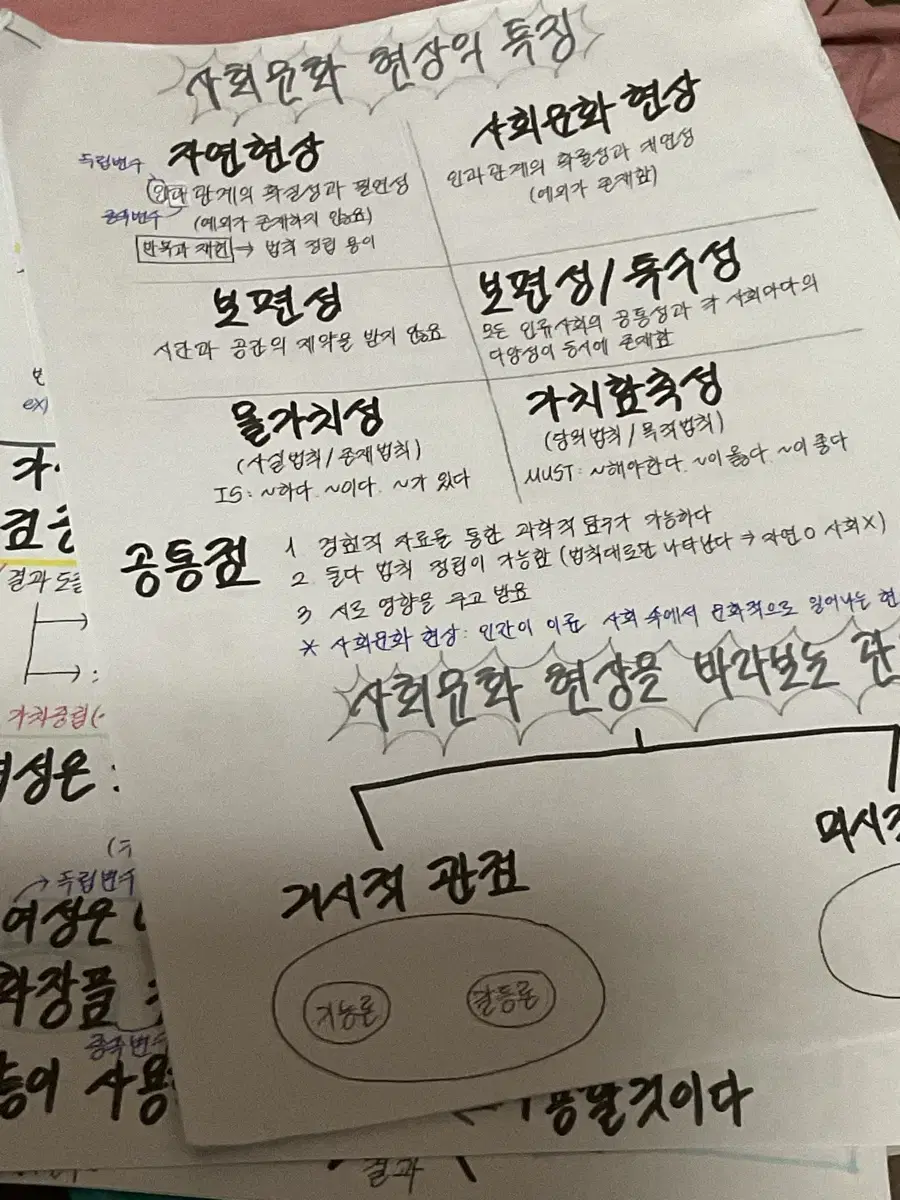 사회문화 현상의 특징
자연현상
독립변수
인과 관계의 확실성과 필연성
종속변수
(예외가 존재하지 않음)
반복과 재현 → 법칙 정립 용이
사회문화 현상
인과관계의 확률성과 개연성
(예외가 존재함)
보편성
시간과 공간의 제약을 받지 않음
보편성/특수성
모든 인류사회의 공통성과 각 사회마다의
다양성이 동시에 존재함
몰가치성
(사실법칙/존재법칙)
IS: ~하다. ~이다. ~가 있다
가치함축성
(당위법칙/목적법칙)
MUST: ~해야한다. ~이 옳다. ~이 좋다
공통점
1 경험적 자료를 통한 과학적 탐구가 가능하다
2 둘다 법칙 정립이 가능함 (법칙대로만 나타난다 ⇒ 자연O 사회X)
3 서로 영향을 주고 받음
* 사회문화 현상: 인간이 이룬 사회 속에서 문화적으로 일어나는 현
사회문화 현상을 바라보는 관
거시적 관점
기능론
갈등론
미시적
ex)
결과 도출
가치중립(
여성은 :
독립변수
여성은
화장품
종속변수
사용
것이다
결과